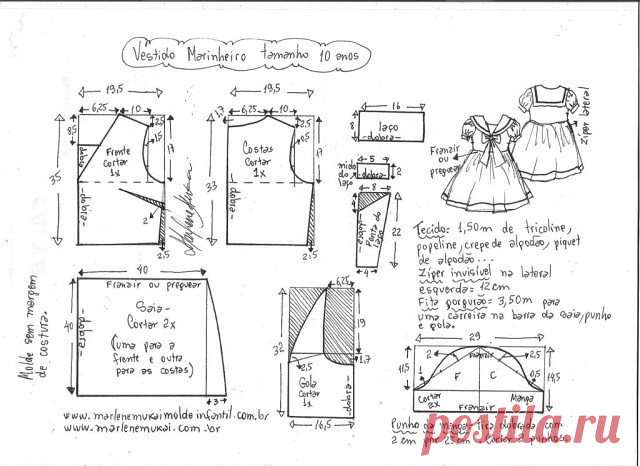 Vestido Marinheiro tamanho 10 anos
19,5
6,25
10
2,5
8,5
1,5
17
35
dobra
Frente
Cortar
1x
dobra
2
2,5
19,5
1,7
6,25
10
2,5
0,5
17
33
Costas
Cortar
1x
dobra
2,5
16
8
laço
dobra
5
miolo
do
laço
dobra
2
8
dobra
Ponta do
laço
22
4
Franzir
ou
preguear
Ziper lateral
Tecido: 1,50m de tricoline,
popeline, crepe de algodão, piquet
de algodão...
Zíper invisível na lateral
esquerda = 12cm
Fita gorgurão = 3,50m para
uma carreira na barra da saia, punho
e gola.
40
Franzir ou preguear
40
dobra
Saia
Cortar 2x
(uma para a
frente e outra
para as costas)
3
Molde sem margem
de costura.
6,25
32
19
1,7
2,5
Gola
cortar
1x
dobra
16,5
29
2
Franzir
2,5
11,5
1
F
C
0,5
14,5
Cortar
2x
Manga
Franzir
Punho da manga = tira dobrada com
2 cm por 25 cm
2 punhos.
www.marlenemukaimoldeinfantil.com.br
www.marlenemukai.com.br
postila.ru